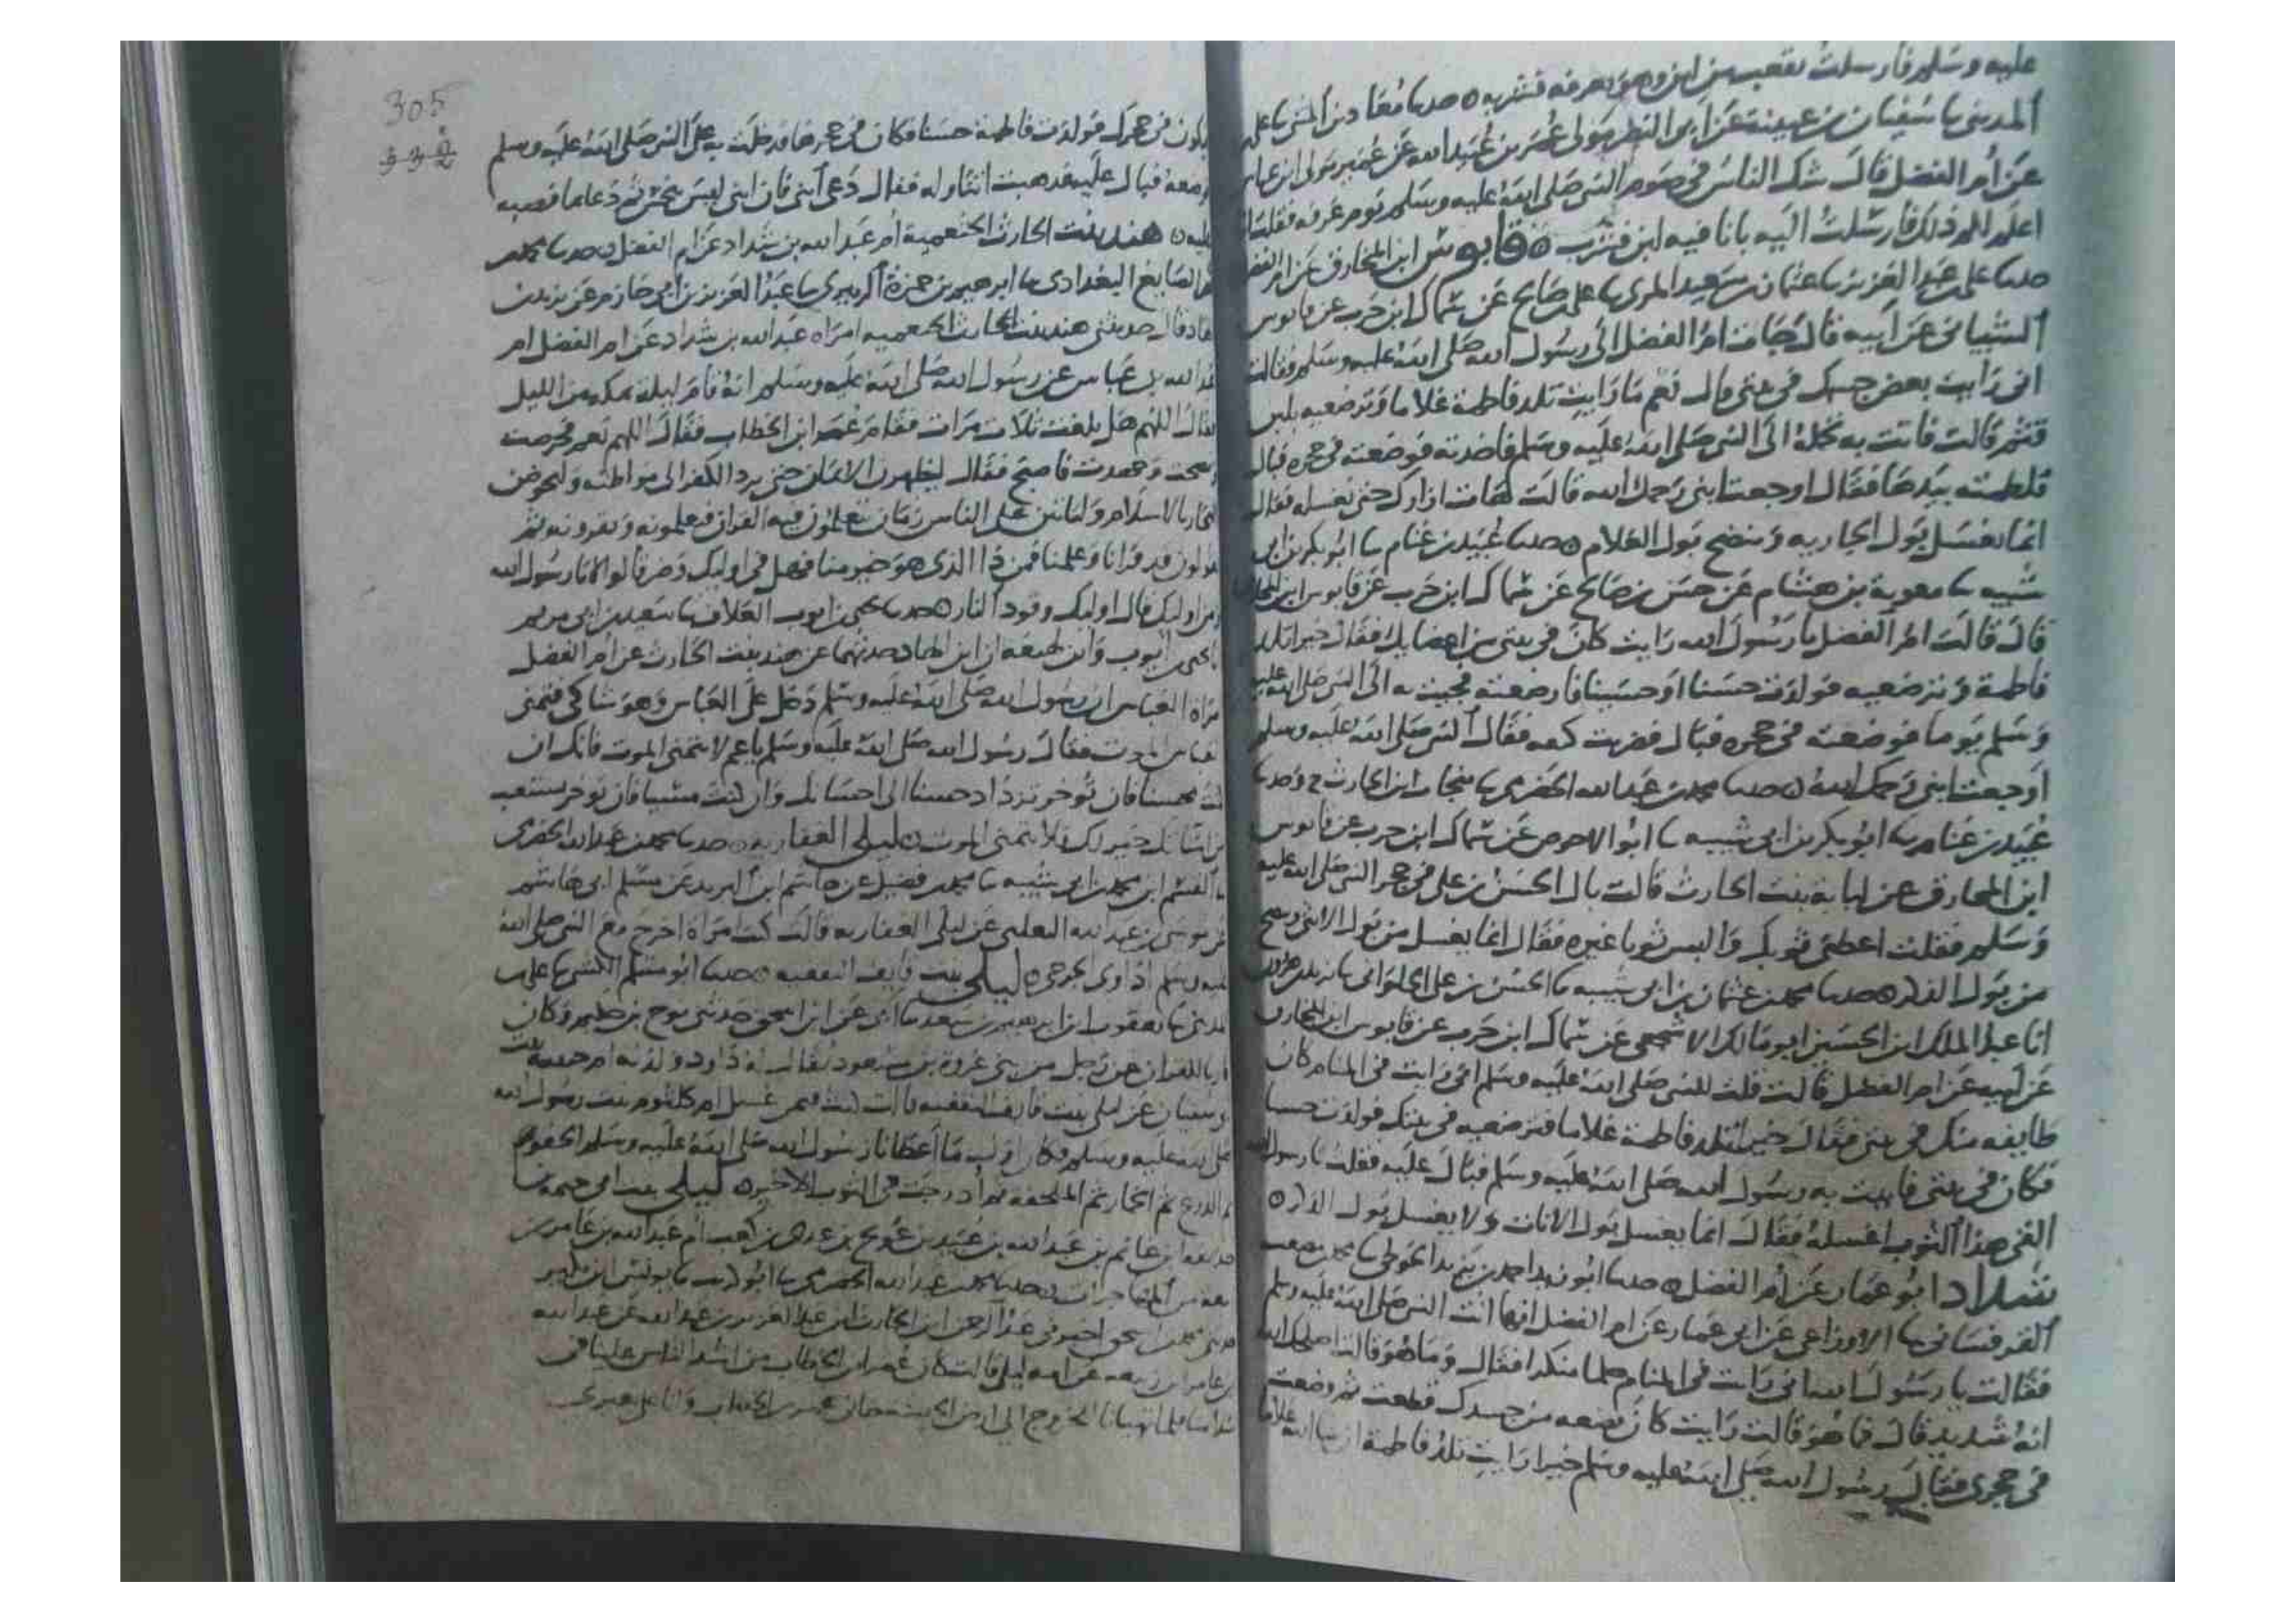 عليه وسلم فارسلت بقعب من لبن وهو بعرفه فشربه ۝ حدثنا معاذ بن المثنى ثنا علي
المديني ثنا سفيان بن عيينة عن ابي النضر مولى عمر بن عبيد الله عن عمير مولى ابن عباس
عن ام الفضل قال شك الناس في صوم النبي صلى الله عليه وسلم يوم عرفه فقلت انا
اعلم لكم ذلك فارسلت اليه بانا فيه لبن فشرب ۝ قابوس ابن المخارق عن ام الفضل
حدثنا علي عبد العزيز ثنا عثمان بن سعيد المري ثنا علي بن صالح عن سماك ابن حرب عن قابوس
الشيباني عن ابيه قال جات ام الفضل الى رسول الله صلى الله عليه وسلم فقالت
اني رايت بعض جسمك في بيتي قال نعم ما رايت تلد فاطمة غلاما وترضعيه بلبن
قثم قالت فاتت به تحمله الى النبي صلى الله عليه وسلم فاخذته فوضعته في حجره فبال
فلطمته بيدها فقال اوجعت ابني رحمك الله قالت هات ازارك حتى نغسله فقال
انما يغسل بول الجاريه وينضح بول الغلام ۝ حدثنا عبيد بن غنام ثنا ابو بكر بن ابي
شيبه ثنا معوية بن هشام عن حسن بن صالح عن سماك ابن حرب عن قابوس ابن المخارق
قال قالت ام الفضل يا رسول الله رايت كان في بيتي من اعضايك فقال خيرا تلد
فاطمة وترضعيه فولدت حسنا او حسينا فارضعته فجيت به الى النبي صلى الله عليه
وسلم يوما فوضعته في حجره فبال فضربت كتفه فقال النبي صلى الله عليه وسلم
اوجعت ابني رحمك الله ۝ حدثنا محمد بن عبد الله الحضرمي ثنا منجاب ابن الحارث ح وحدثنا
عبيد بن غنام ثنا ابو بكر بن ابي شيبه ثنا ابو الاحوص عن سماك ابن حرب عن قابوس
ابن المخارق عن لبابة بنت الحارث قالت بال الحسين بن علي في حجر النبي صلى الله عليه
وسلم فقلت اعطني ثوبك والبس ثوبا غيره فقال انما يغسل من بول الانثى وينضح
من بول الذكر ۝ حدثنا محمد بن عثمان بن ابي شيبه ثنا الحسن بن علي الحلواني ثنا يزيد بن هرون
انا عبد الملك ابن الحسين ابو مالك الاشجعي عن سماك ابن حرب عن قابوس ابن المخارق
عن ابيه عن ام الفضل قالت قلت للنبي صلى الله عليه وسلم اني رايت في المنام كان
طايفه منك في بيتي فقال خيرا تلد فاطمة غلاما فترضعيه في بيتك فولدت حسنا
فكان في بيتي فاتيت به رسول الله صلى الله عليه وسلم فبال عليه فقلت يا رسول الله
الق هذا الثوب اغسله فقال انما يغسل بول الاناث ولا يغسل بول الذكر ۝
شداد ابو عمار عن ام الفضل ۝ حدثنا ابو زيد احمد بن يزيد الحوطي ثنا محمد بن مصعب
القرقساني ثنا الاوزاعي عن ابي عمار عن ام الفضل انها اتت النبي صلى الله عليه وسلم
فقالت يا رسول الله اني رايت في المنام حلما منكرا فقال وما هو قالت اصلحك الله
انه شديد قال فما هو قالت رايت كان بضعه من جسدك قطعت ثم وضعت
في حجري فقال رسول الله صلى الله عليه وسلم خيرا رايت تلد فاطمة ان شا الله غلاما
305
يكون في حجرك فولدت فاطمة حسنا فكان في حجرها فدخلت به على النبي صلى الله عليه وسلم
فوضعه فبال عليه فذهبت اتناوله فقال دعي ابني فان ابني ليس بنجس ثم دعا بما فصبه
عليه ۝ هند بنت الحارث الخثعمية ام عبد الله بن شداد عن ام الفضل ۝ حدثنا محمد
الصايغ البغدادي ثنا ابرهيم بن حمزة الزبيري ثنا عبد العزيز بن ابي حازم عن يزيد بن
الهاد قال حدثتني هند بنت الحارث الخثعميه امراه عبد الله بن شداد عن ام الفضل ام
عبد الله بن عباس عن رسول الله صلى الله عليه وسلم انه قام ليلة بمكه من الليل
فقال اللهم هل بلغت ثلاث مرات فقام عمر ابن الخطاب فقال اللهم نعم فحرصت
ونصحت وجهدت فاصبح فقال ليظهرن الايمان حتى يرد الكفر الى مواطنه وليخوضن
البحار بالاسلام ولياتين على الناس زمان يتعلمون فيه القران فيعلمونه ويقرونه ثم
يقولون قد قرانا وعلمنا فمن ذا الذي هو خير منا فهل في اوليك من خير قالوا لا يا رسول الله
من اوليك قال اوليك وقود النار ۝ حدثنا يحيى بن ايوب العلاف ثنا سعيد بن ابي مريم
انا يحيى ايوب وابن لهيعه ان ابن الهاد حدثهما عن هند بنت الحارث عن ام الفضل
امراه العباس ان رسول الله صلى الله عليه وسلم دخل على العباس وهو شاكي فتمنى
العباس الموت فقال رسول الله صلى الله عليه وسلم يا عم لا تتمنى الموت فانك ان
كنت محسنا فان توخر تزداد حسنا الى احسانك وان كنت مسيا فان توخر تستعتب
من اساتك خير لك فلا تتمنى الموت ۝ ليلى الغفاريه ۝ حدثنا محمد بن عبد الله الحضرمي
ثنا القسم ابن محمد بن ابي شيبه ثنا محمد بن فضيل عن هاشم ابن البريد عن مسلم ابي هاشم
عن موسى بن عبد الله الثعلبي عن ليلى الغفاريه قالت كنت امراة اخرج مع النبي صلى الله
عليه وسلم اداوي الجرحى ۝ ليلى بنت قايف الثقفيه ۝ حدثنا ابو مسلم الكشي ثنا علي بن
المديني ثنا يعقوب ابن ابرهيم بن سعد ثنا ابي عن ابن اسحق حدثني نوح بن حكيم وكان
قاريا للقران عن رجل من بني عروة بن مسعود يقال له داود ولدته ام حبيبه بنت
ابي سفيان عن ليلى بنت قايف الثقفيه قالت كنت فيمن غسل ام كلثوم بنت رسول الله
صلى الله عليه وسلم فكان اول ما اعطانا رسول الله صلى الله عليه وسلم الحقو
ثم الدرع ثم الخمار ثم الملحفه ثم ادرجت في الثوب الاخير ۝ ليلى بنت ابي حثمة بن
حذيفه ابن غانم بن عبد الله بن عبيد بن عويج بن عدي بن كعب ام عبد الله بن عامر بن
ربيعه من المهاجرات ۝ حدثنا محمد بن عبد الله الحضرمي ثنا ابو كريب ثنا يونس ابن بكير
حدثني محمد بن اسحق اخبرني عبد الرحمن ابن الحارث ابن عبد العزيز بن عبد الله عن عبد الله
بن عامر ابن ربيعه عن امه ليلى قالت كان عمر ابن الخطاب من اشد الناس علينا في
اسلامنا فلما تهيانا للخروج الى ارض الحبشه جاني عمر بن الخطاب وانا على بعيري